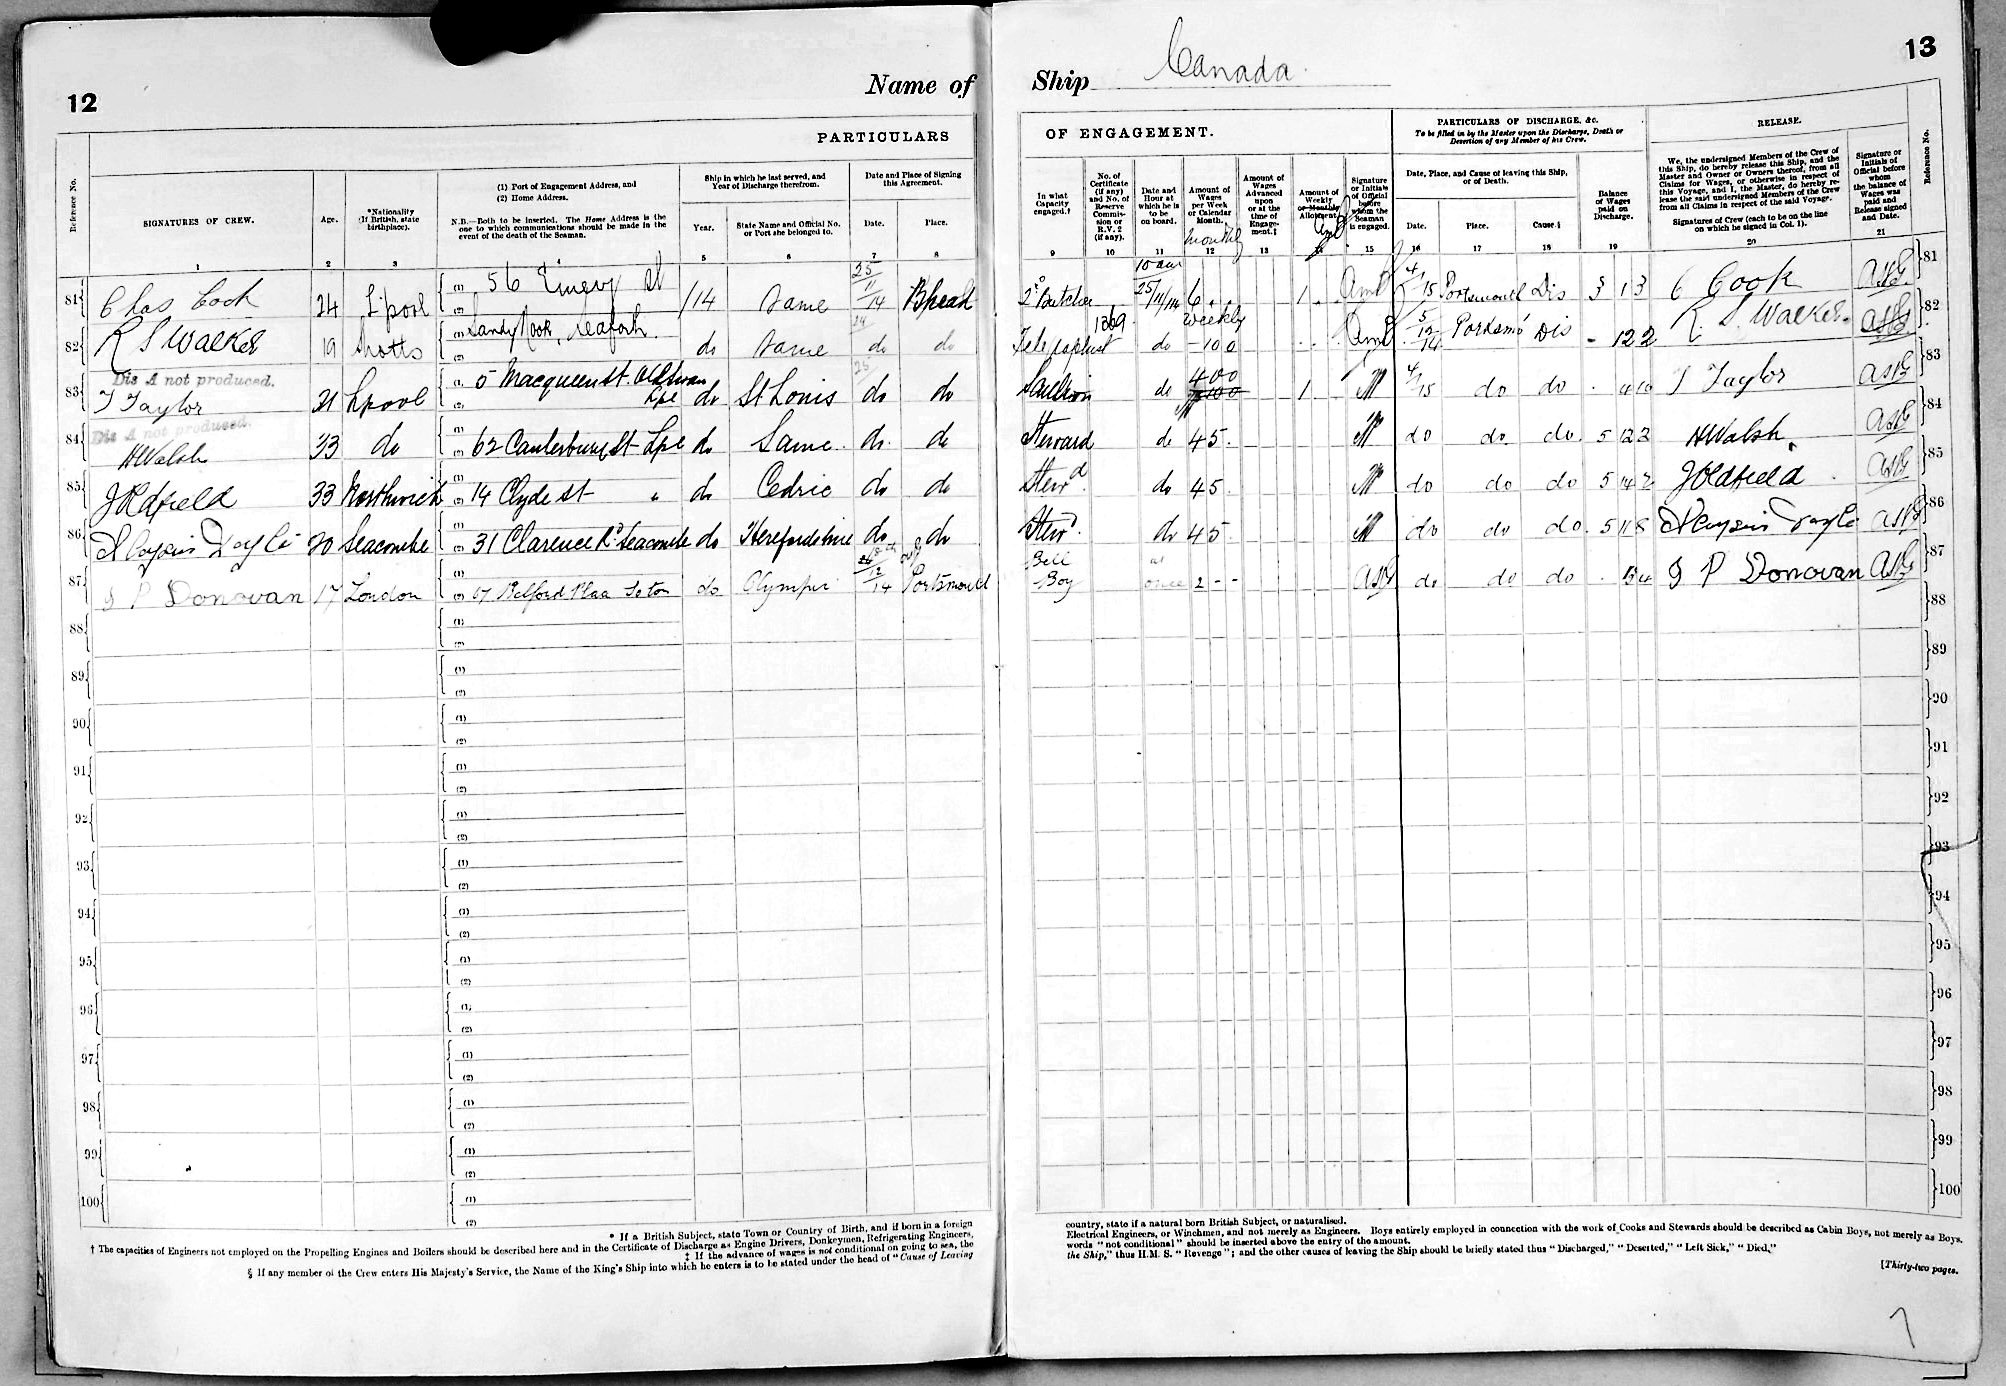 12
Name of
PARTICULARS
Reference No.
SIGNATURES OF CREW.
Age.
*Nationality
(If British, state
birthplace).
(1) Port of Engagement Address, and
(2) Home Address.
N.B.—Both to be inserted. The Home Address is the
one to which communications should be made in the
event of the death of the Seaman.
Ship in which he last served, and
Year of Discharge therefrom.
Year.
State Name and Official No.
or Port she belonged to.
Date and Place of Signing
this Agreement.
Date.
Place.
1 2 3 4 5 6 7 8
81 Chas Cook 24 L'pool (1) 56 St /14 Same 25/11/14 B'head
82 R S Walker 19 Shotts (1) Sandy Seaforth (2) do Same do do
Dis A not produced.
83 T Taylor 21 Lpool (1) 5 Macqueen St. Old Swan (2) Lpl do St Louis do do
Dis A not produced.
84 H Walsh 33 do (1) (2) 62 Canterbury St Lpl do Same do do
85 J Oldfield 33 Northwich (1) (2) 14 Clyde St " do Cedric do do
86 Aloysius Doyle 20 Seacombe (1) (2) 31 Clarence Rd Seacombe do Herefordshire do do
87 J P Donovan 17 London (1) (2) 17 Belford do Olympic 12/14 Portsmouth
88 (1) (2)
89 (1) (2)
90 (1) (2)
91 (1) (2)
92 (1) (2)
93 (1) (2)
94 (1) (2)
95 (1) (2)
96 (1) (2)
97 (1) (2)
98 (1) (2)
99 (1) (2)
100 (1) (2)
* If a British Subject, state Town or Country of Birth, and if born in a foreign
† The capacities of Engineers not employed on the Propelling Engines and Boilers should be described here and in the Certificate of Discharge as Engine Drivers, Donkeymen, Refrigerating Engineers,
‡ If the advance of wages is not conditional on going to sea, the
§ If any member of the Crew enters His Majesty's Service, the Name of the King's Ship into which he enters is to be stated under the head of "Cause of Leaving
13
Ship Canada.
OF ENGAGEMENT.
PARTICULARS OF DISCHARGE, &c.
To be filled in by the Master upon the Discharge, Death or
Desertion of any Member of his Crew.
RELEASE.
In what
Capacity
engaged.†
No. of
Certificate
(if any)
and No. of
Reserve
Commis-
sion or
R.V. 2
(if any).
Date and
Hour at
which he is
to be
on board.
Amount of
Wages
per Week
or Calendar
Month.
Monthly
Amount of
Wages
Advanced
upon
or at the
time of
Engage-
ment.‡
Amount of
Weekly
or Monthly
Allotment.
Signature
or Initials
of Official
before
whom the
Seaman
is engaged.
Date, Place, and Cause of leaving this Ship,
or of Death.
Date.
Place.
Cause.§
Balance
of Wages
paid on
Discharge.
We, the undersigned Members of the Crew of
this Ship, do hereby release this Ship, and the
Master and Owner or Owners thereof, from all
Claims for Wages, or otherwise in respect of
this Voyage, and I, the Master, do hereby re-
lease the said undersigned Members of the Crew
from all Claims in respect of the said Voyage.
Signatures of Crew (each to be on the line
on which he signed in Col. 1).
Signature or
Initials of
Official before
whom
the balance of
Wages was
paid and
Release signed
and Date.
Reference No.
9 10 11 12 13 14 15 16 17 18 19 20 21
10 am
2d Butcher 25/11/14 6 1 4/15 Portsmouth Dis 3 13 C Cook 81
1369 weekly
Telegraphist do 100 5/12/14 Portsmo Dis 122 R. S. Walker 82
400 1 4/15 do do 4 T Taylor 83
Steward do 45 do do do 5 22 H Walsh 84
Stewd. do 45 do do do 5 J Oldfield 85
Stewd. do 45 do do do 5 Aloysius Doyle 86
Bell
Boy at once 2 - - do do do J P Donovan 87
88
89
90
91
92
93
94
95
96
97
98
99
100
country, state if a natural born British Subject, or naturalised.
Electrical Engineers, or Winchmen, and not merely as Engineers. Boys entirely employed in connection with the work of Cooks and Stewards should be described as Cabin Boys, not merely as Boys.
words "not conditional" should be inserted above the entry of the amount.
the Ship," thus H.M.S. "Revenge"; and the other causes of leaving the Ship should be briefly stated thus "Discharged," "Deserted," "Left Sick," "Died."
[Thirty-two pages.
7